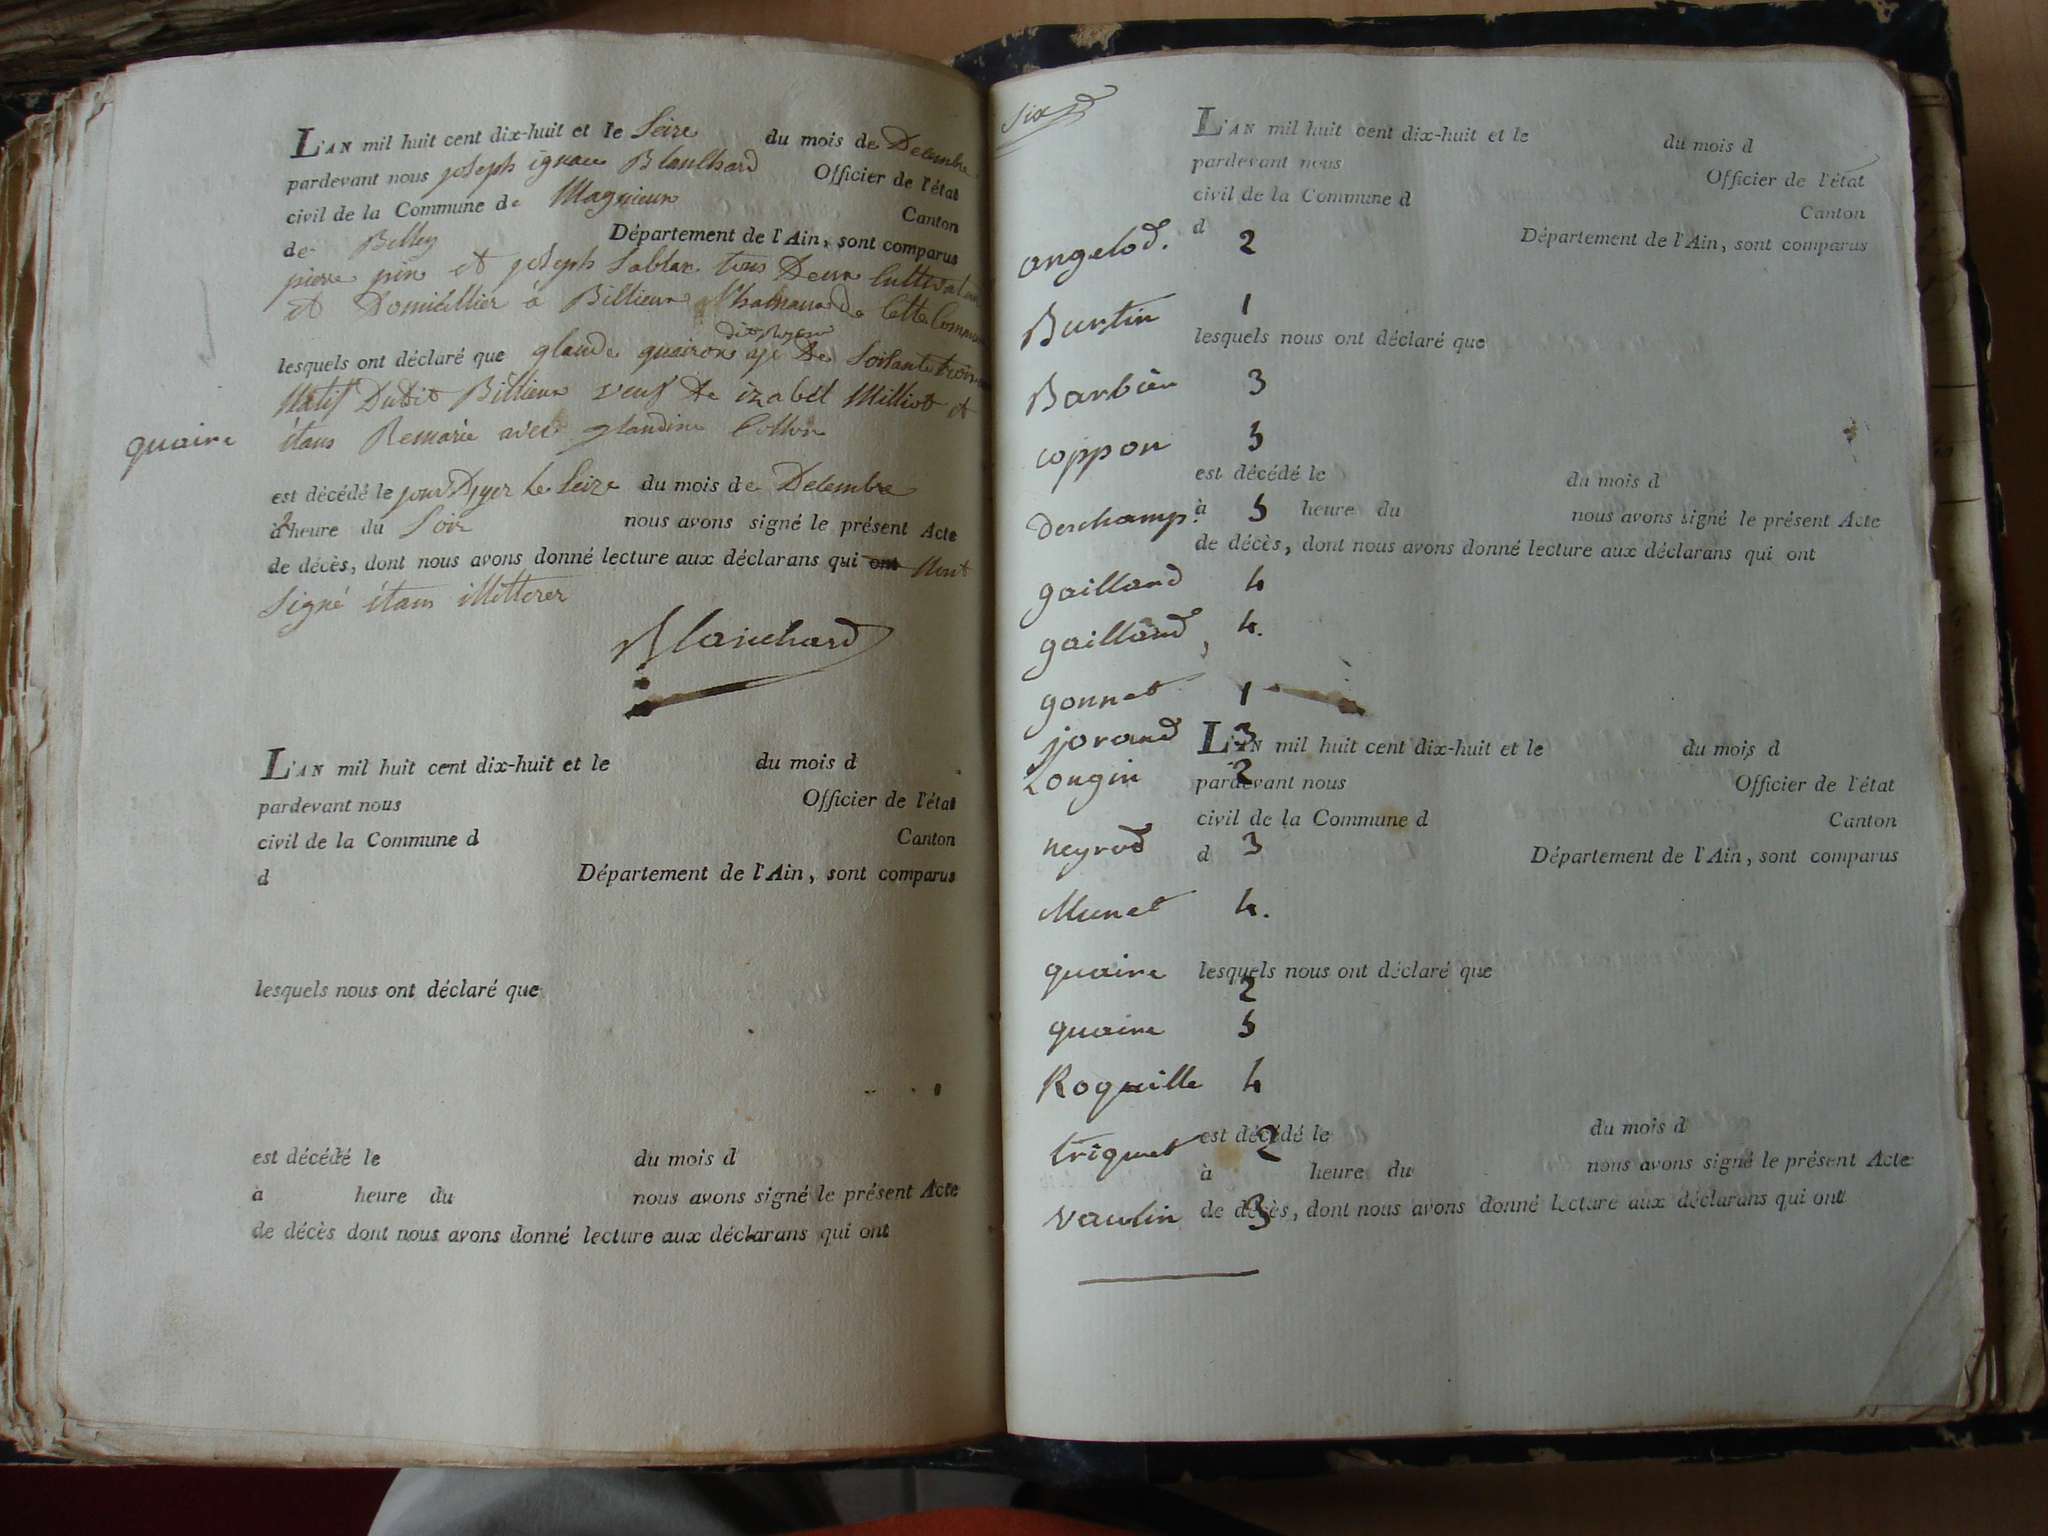 L'AN mil huit cent dix-huit et le Seize du mois de Decembre
pardevant nous joseph ignace Blanchard Officier de l'état
civil de la Commune de Magnieux Canton
de Belley Département de l'Ain, sont comparus
pierre pin et joseph Sablax tous Deux Cultivateur
et Domicillier à Billieux de cette Commune
dit
lesquels ont déclaré que glaude quaire age De Soisante trois
Natif Dudit Billieux veuf De izabel Milliot et
étans Remarie avec glaudine Collon
quaire
est décédé le jour D'yer le Seize du mois de Decembre
à 2 heure du Soir nous avons signé le présent Acte
de décès, dont nous avons donné lecture aux déclarans qui ont Nont
Signé étans illetterer
Blanchard
L'AN mil huit cent dix-huit et le du mois d
pardevant nous Officier de l'état
civil de la Commune d Canton
d Département de l'Ain, sont comparus
lesquels nous ont déclaré que
est décédé le du mois d
à heure du nous avons signé le présent Acte
de décès dont nous avons donné lecture aux déclarans qui ont
Six
L'AN mil huit cent dix-huit et le du mois d
pardevant nous Officier de l'état
civil de la Commune d Canton
d Département de l'Ain, sont comparus
angelod. 2
Burtin 1
lesquels nous ont déclaré que
Barbier 3
Coppon 5
est décédé le du mois d
deschamp. 5
à heure du nous avons signé le présent Acte
de décès, dont nous avons donné lecture aux déclarans qui ont
gailland 4
gailland 4.
gonnet 1
jorand 3
L'AN mil huit cent dix-huit et le du mois d
Longin 2
pardevant nous Officier de l'état
civil de la Commune d Canton
neyrod 3
d Département de l'Ain, sont comparus
Munet 4.
quaire 2
lesquels nous ont déclaré que
quaire 5
Roquille 4
est décédé le du mois d
triquet 2
à heure du nous avons signé le présent Acte
vaulin 3
de décès, dont nous avons donné lecture aux déclarans qui ont